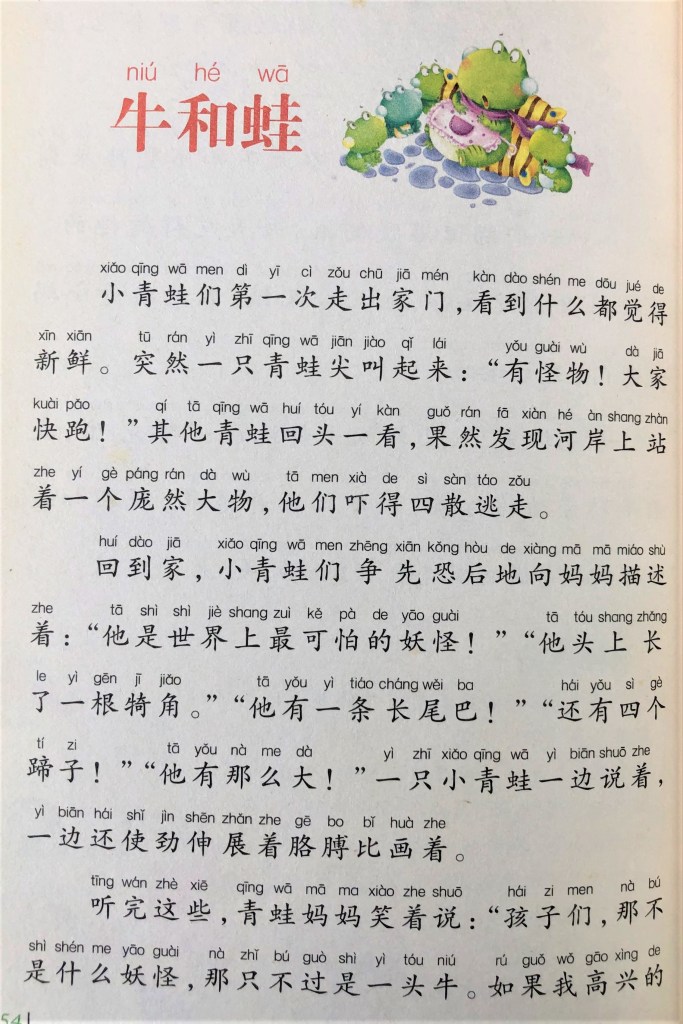 niú hé wā
牛和蛙
xiǎo qīng wā men dì yī cì zǒu chū jiā mén kàn dào shén me dōu jué de
小青蛙们第一次走出家门，看到什么都觉得
xīn xiān tū rán yì zhī qīng wā jiān jiào qǐ lái yǒu guài wù dà jiā
新鲜。突然一只青蛙尖叫起来：“有怪物！大家
kuài pǎo qí tā qīng wā huí tóu yí kàn guǒ rán fā xiàn hé àn shang zhàn
快跑！”其他青蛙回头一看，果然发现河岸上站
zhe yí gè páng rán dà wù tā men xià de sì sàn táo zǒu
着一个庞然大物，他们吓得四散逃走。
huí dào jiā xiǎo qīng wā men zhēng xiān kǒng hòu de xiàng mā mā miáo shù
回到家，小青蛙们争先恐后地向妈妈描述
zhe tā shì shì jiè shang zuì kě pà de yāo guài tā tóu shang zhǎng
着：“他是世界上最可怕的妖怪！”“他头上长
le yì gēn jī jiǎo tā yǒu yì tiáo cháng wěi ba hái yǒu sì gè
了一根犄角。”“他有一条长尾巴！”“还有四个
tí zi tā yǒu nà me dà yì zhī xiǎo qīng wā yì biān shuō zhe
蹄子！”“他有那么大！”一只小青蛙一边说着，
yì biān hái shǐ jìn shēn zhǎn zhe gē bo bǐ huà zhe
一边还使劲伸展着胳膊比画着。
tīng wán zhè xiē qīng wā mā ma xiào zhe shuō hái zi men nà bú
听完这些，青蛙妈妈笑着说：“孩子们，那不
shì shén me yāo guài nà zhǐ bú guò shì yì tóu niú rú guǒ wǒ gāo xìng de
是什么妖怪，那只不过是一头牛。如果我高兴的
54